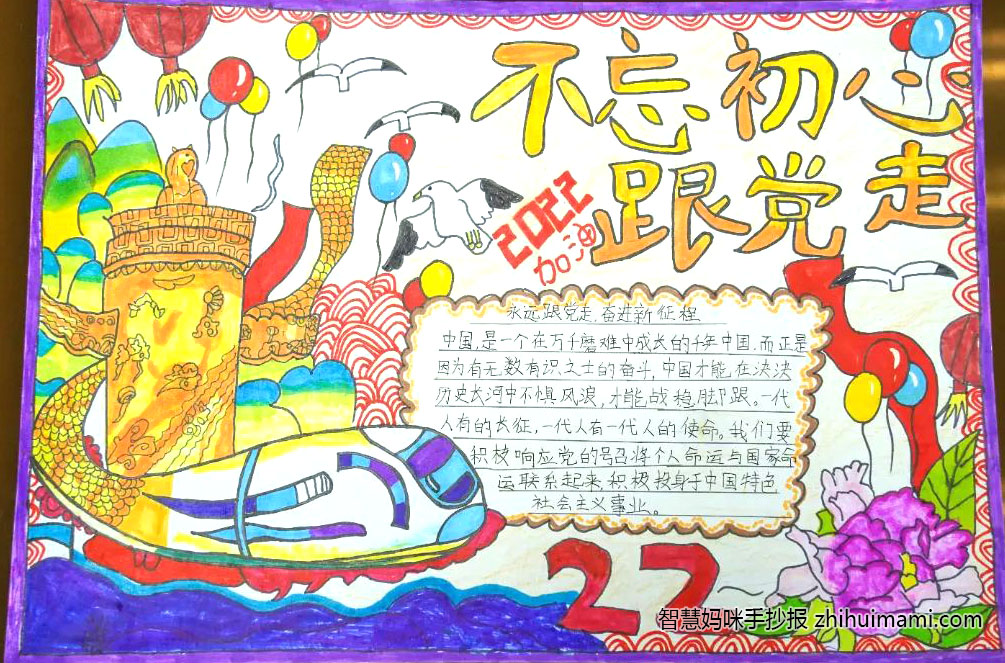 不忘初心
跟党走
2022
加油
永远跟党走,奋进新征程
中国,是一个在万千磨难中成长的千年中国.而正是
因为有无数有识之士的奋斗,中国才能在泱泱
历史长河中不惧风浪,才能战稳脚跟。一代
人有的长征,一代人有一代人的使命。我们要
积极响应党的号召将个人命运与国家命
运联系起来积极投身于中国特色
社会主义事业。
22
智慧妈咪手抄报 zhihuimami.com